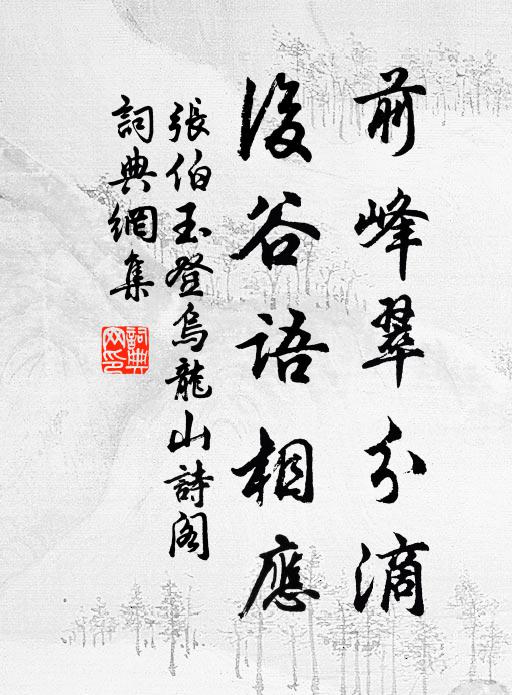 前峰翠分滴
後谷語相應
張伯玉登烏龍山詩閣
詞典網集
詞典網印